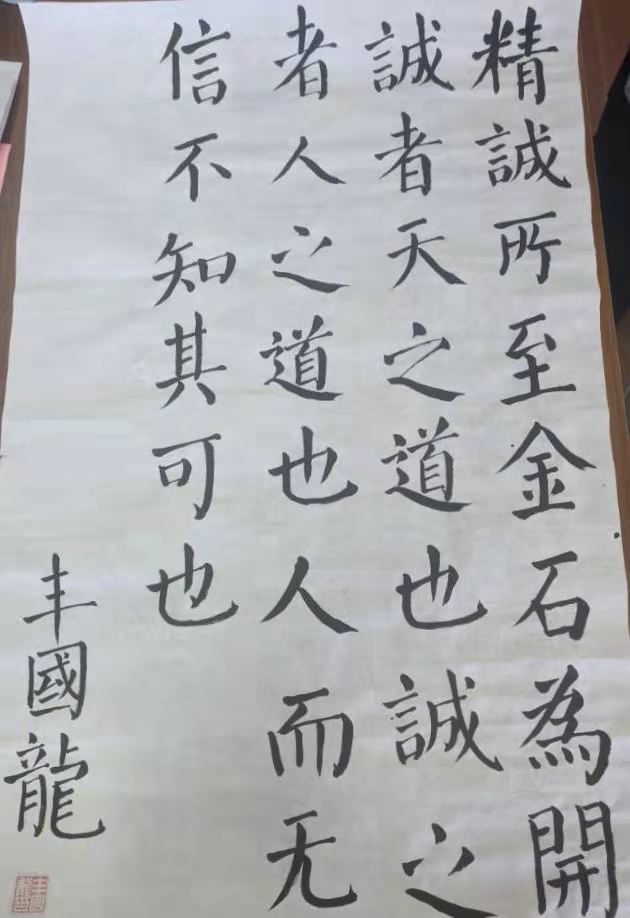 精誠所至金石為開
誠者天之道也誠之
者人之道也人而无
信不知其可也
丰國龍